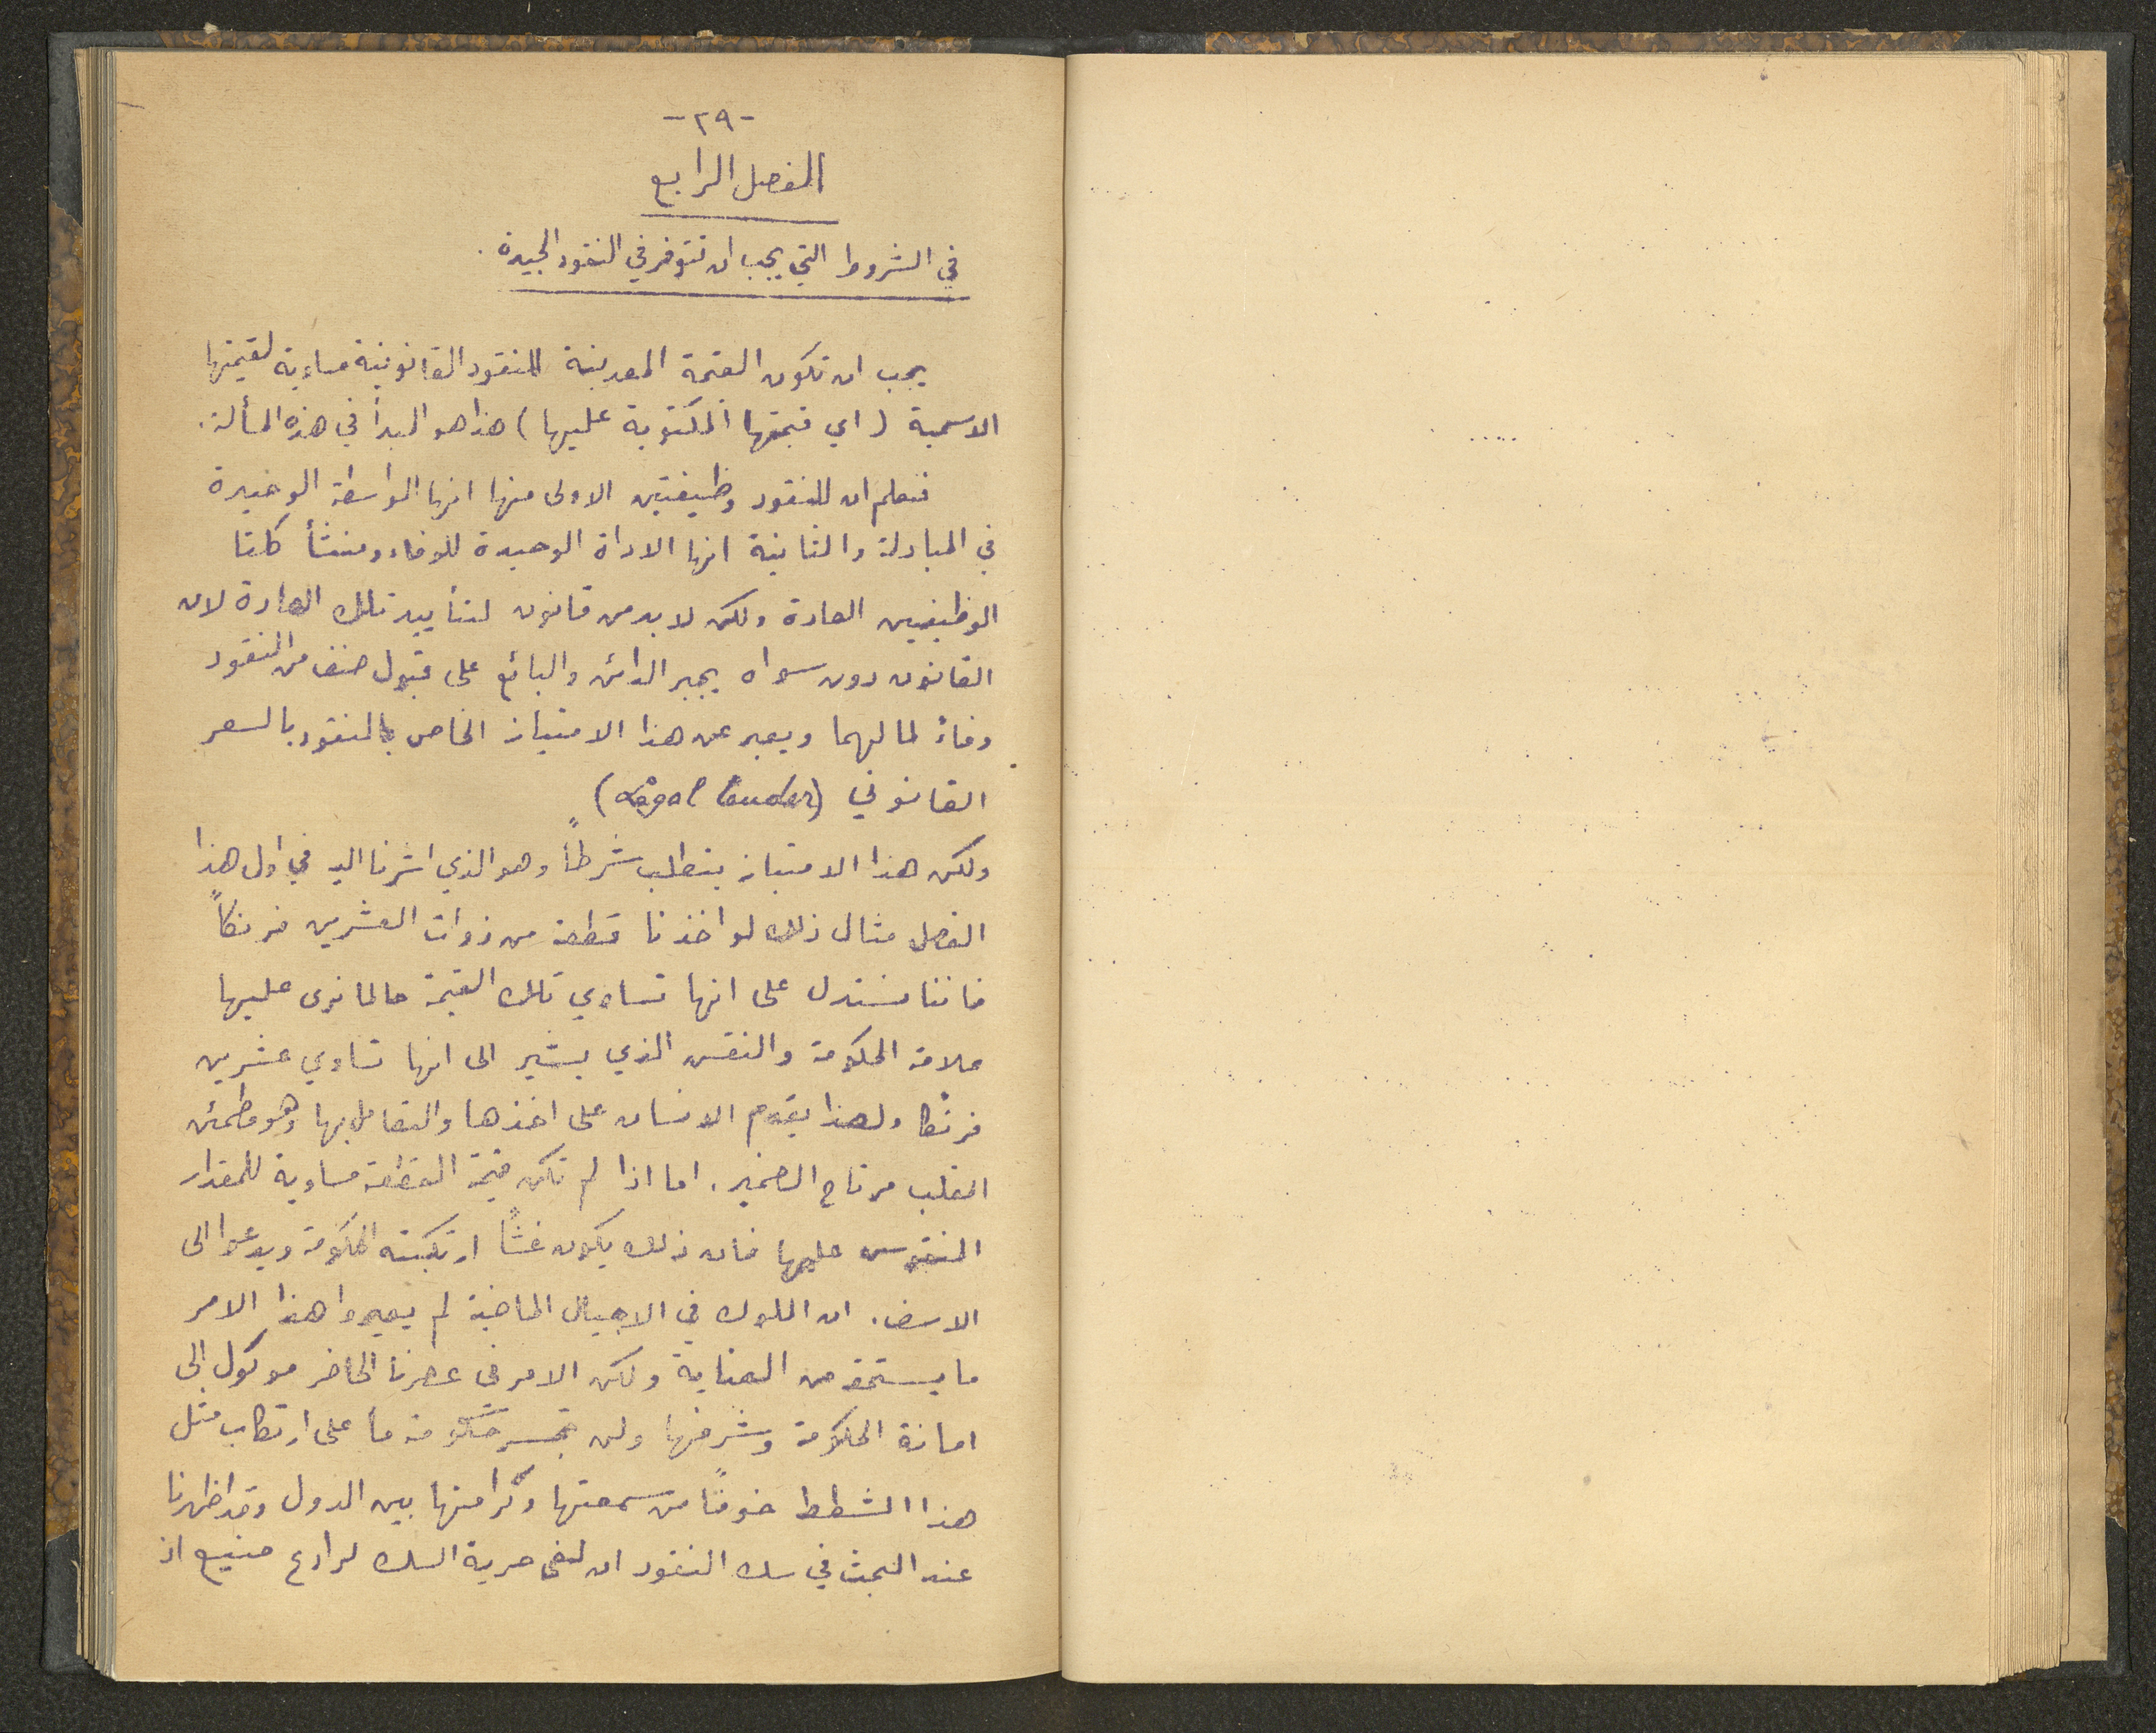 -٢٩-
الفصل الرابع
في الشروط التي يجب ان تتوفر في النقود الجيدة.
يجب ان تكون القيمة المعدنية للنقود القانونية مساوية لقيمتها
الاسمية (اي قيمتها المكتوبة عليها) هذا هو المبدأ في هذه المسألة.
فنعلم ان للنقود وظيفتين الاولى منها انها الواسطة الوحيدة
في المبادلة والثانية انها الاداة الوحيدة للوفاء ومنشأ كلتا
الوظيفتين العادة ولكن لا بد من قانون لتأييد تلك العادة لان
القانون دون سواه يجبر الدائن والبائع على قبول صنف من النقود
وفاءً لمالهما ويعبر عن هذا الامتياز الخاص بالنقود بالسعر
القانوني (Legal tender)
ولكن هذا الامتياز يتطلب شرطاً وهو الذي اشرنا اليه في اول هذا
الفصل مثال ذلك لو اخذنا قطعة من ذوات العشرين فرنكاً
فاننا نستدل على انها تساوي تلك القيمة حالما نرى عليها
علامة الحكومة والنقش الذي يشير الى انها تساوي عشرين
فرنكا ولهذا يقدم الانسان على اخذها والتعامل بها وهو مطمئن
القلب مرتاح الضمير. اما اذا لم تكن قيمة القطعة مساوية للمقدار
المنقوش عليها فان ذلك يكون غشاً ارتكبته الحكومة ويدعوا الى
الاسف. ان الملوك في الاجيال الماضية لم يعيروا هذا الامر
ما يستحقه من العناية ولكن الامر في عصرنا الحاضر موكول الى
امانة الحكومة وشرفها ولن تجسر حكومة ما على ارتكاب مثل
هذا الشطط خوفاً من سمعتها وكرامتها بين الدول وقد اظهرنا
عند البحث في سك النقود ان لفى حرية السك لرادع منيع اذ